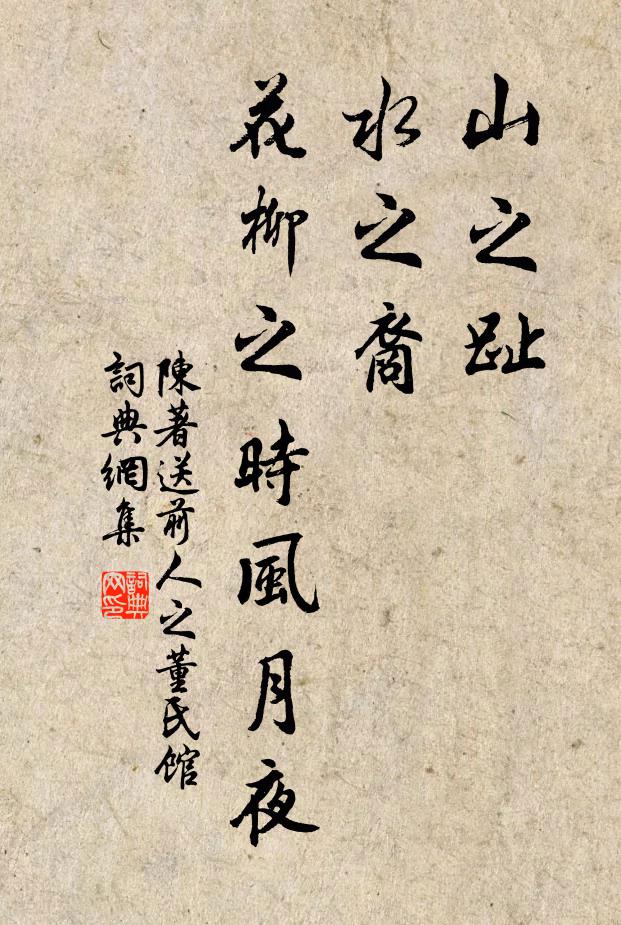 山之趾
水之裔
花柳之時風月夜
陳著送前人之董氏館
詞典網集
詞典
网印